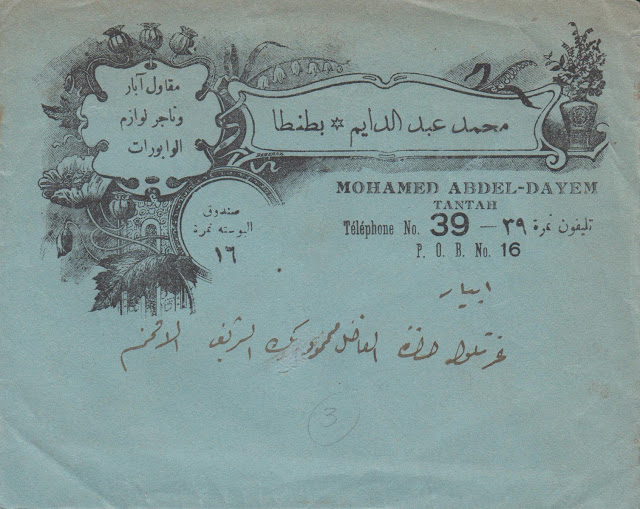 مقاول آبار
وتاجر لوازم
الوابورات
محمد عبد الدايم ✡ بطنطا
صندوق
البوسته نمرة
١٦
MOHAMED ABDEL-DAYEM
TANTAH
Téléphone No. 39 — ٣٩ تليفون نمرة
P. O. B. No. 16
ابيار
حضرة الفاضل محمود بك الشريف الافخم
3